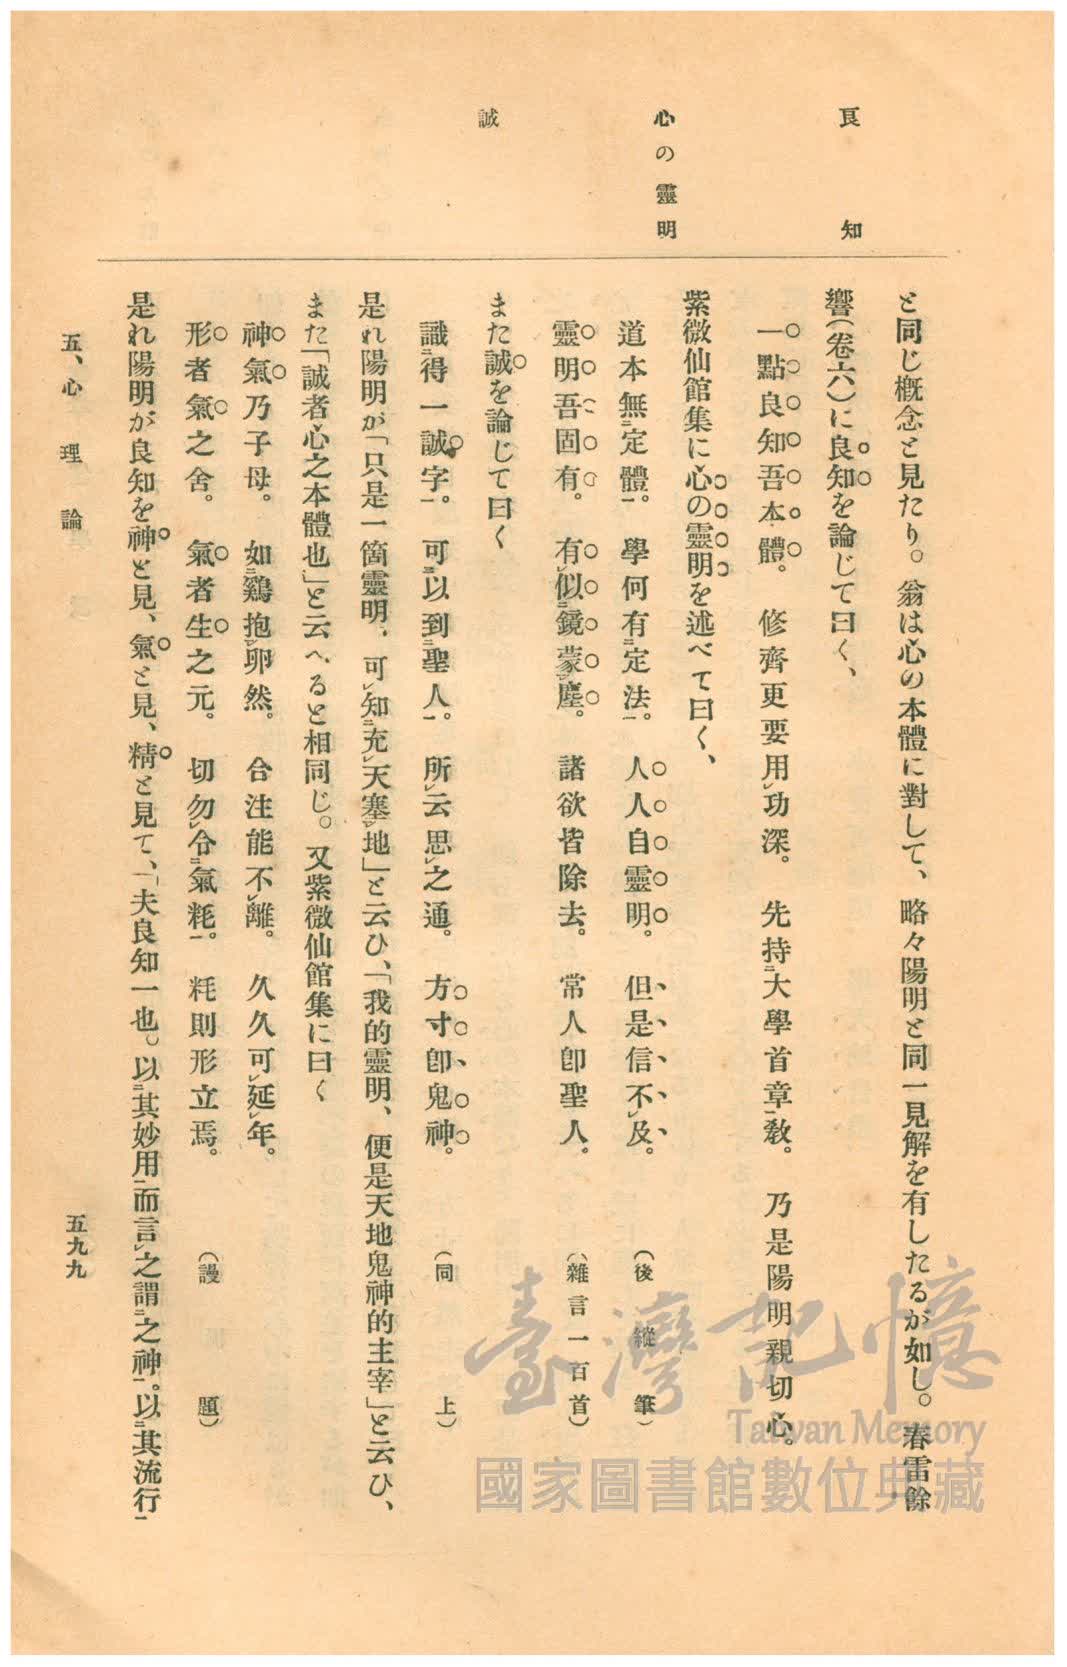 良知
心の靈明
誠
と同じ概念と見たり。翁は心の本體に對して、略々陽明と同一見解を有したるが如し。春雷餘
響(卷六)に良知を論じて曰く、
一點良知吾本體。修齊更要用レ功深。先持二大學首章一敎。乃是陽明親切心。
紫微仙館集に心の靈明を述べて曰く、
道本無二定體一。學何有二定法一。人人自靈明。但是信不レ及。(後縱筆)
靈明吾固有。有レ似二鏡蒙一レ塵。諸欲皆除去。常人卽聖人。(雜言一百首)
また誠を論じて曰く
識二得一誠字一。可三以到二聖人一。所レ云思レ之通。方寸卽鬼神。(同上)
是れ陽明が「只是一箇靈明、可レ知二充レ天塞レ地」と云ひ、「我的靈明、便是天地鬼神的主宰」と云ひ、
また「誠者心之本體也」と云へると相同じ。又紫微仙館集に曰く
神氣乃子母。如二鷄抱レ卵然。合注能不レ離。久久可レ延レ年。
形者氣之舍。氣者生之元。切勿レ令二氣耗一。耗則形立焉。(謾題)
是れ陽明が良知を神と見、氣と見、精と見て、「夫良知一也。以二其妙用一而言レ之謂二之神一。以二其流行一
五、心理論
五九九
臺灣記憶
Taiwan Memory
國家圖書館數位典藏